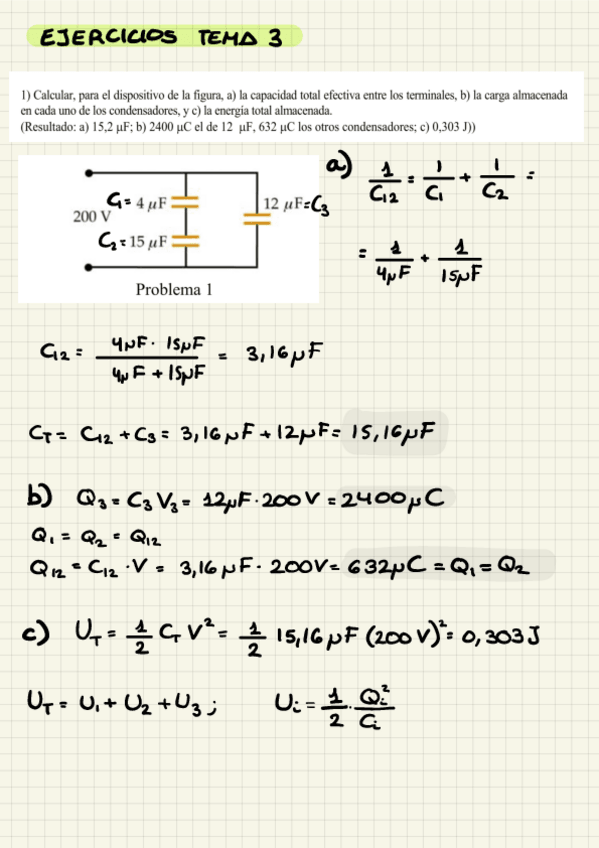 EJERCICIOS TEMA 3
1) Calcular, para el dispositivo de la figura, a) la capacidad total efectiva entre los terminales, b) la carga almacenada
en cada uno de los condensadores, y c) la energía total almacenada.
(Resultado: a) 15,2 μF; b) 2400 μC el de 12 μF, 632 μC los otros condensadores; c) 0,303 J))
C₁= 4 μF
200 V
C₂= 15 μF
12 μF=C₃
Problema 1
a) 1/C₁₂ = 1/C₁ + 1/C₂ =
= 1/4μF + 1/15μF
C₁₂ = 4μF · 15μF / 4μF + 15μF = 3,16μF
C_T = C₁₂ + C₃ = 3,16μF + 12μF = 15,16μF
b) Q₃ = C₃ V₃ = 12μF · 200V = 2400μC
Q₁ = Q₂ = Q₁₂
Q₁₂ = C₁₂ · V = 3,16μF · 200V = 632μC = Q₁ = Q₂
c) U_T = 1/2 C_T V² = 1/2 15,16μF (200V)² = 0,303J
U_T = U₁ + U₂ + U₃ ; U_i = 1/2 · Q_i²/C_i